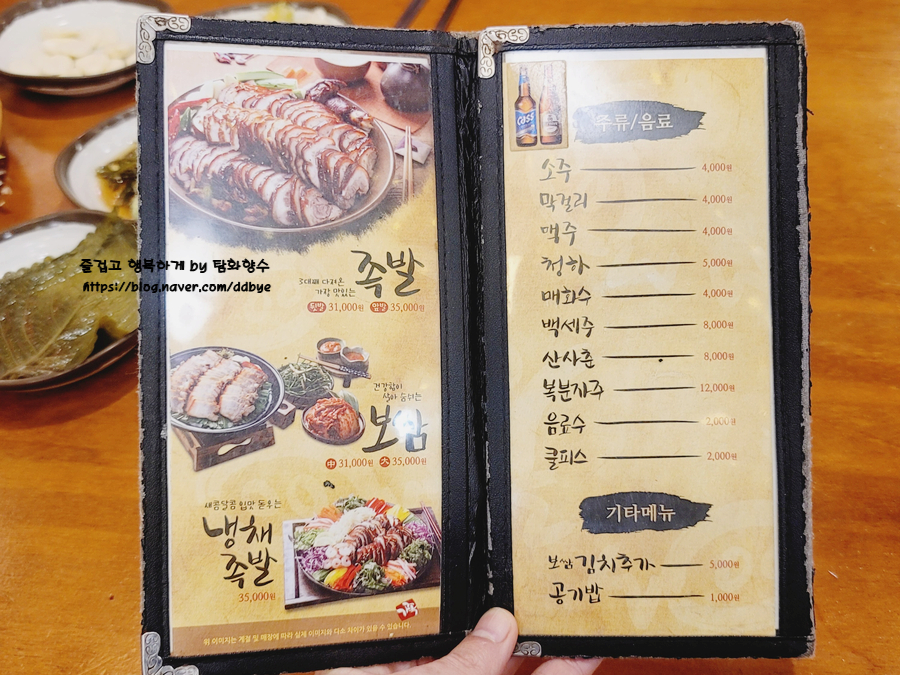 3대째 다려온
가장 맛있는
족발
뒷발 31,000원 앞발 35,000원
즐겁고 행복하게 by 탐화향수
https://blog.naver.com/ddbye
건강함이
살아 숨쉬는
보쌈
中 31,000원 大 35,000원
새콤달콤 입맛 돋우는
냉채
족발
35,000원
위 이미지는 계절 및 매장에 따라 실제 이미지와 다소 차이가 있을 수 있습니다.
Cass
주류/음료
소주 4,000원
막걸리 4,000원
맥주 4,000원
청하 5,000원
매화수 4,000원
백세주 8,000원
산사춘 8,000원
복분자주 12,000원
음료수 2,000원
쿨피스 2,000원
기타메뉴
보쌈김치추가 5,000원
공기밥 1,000원